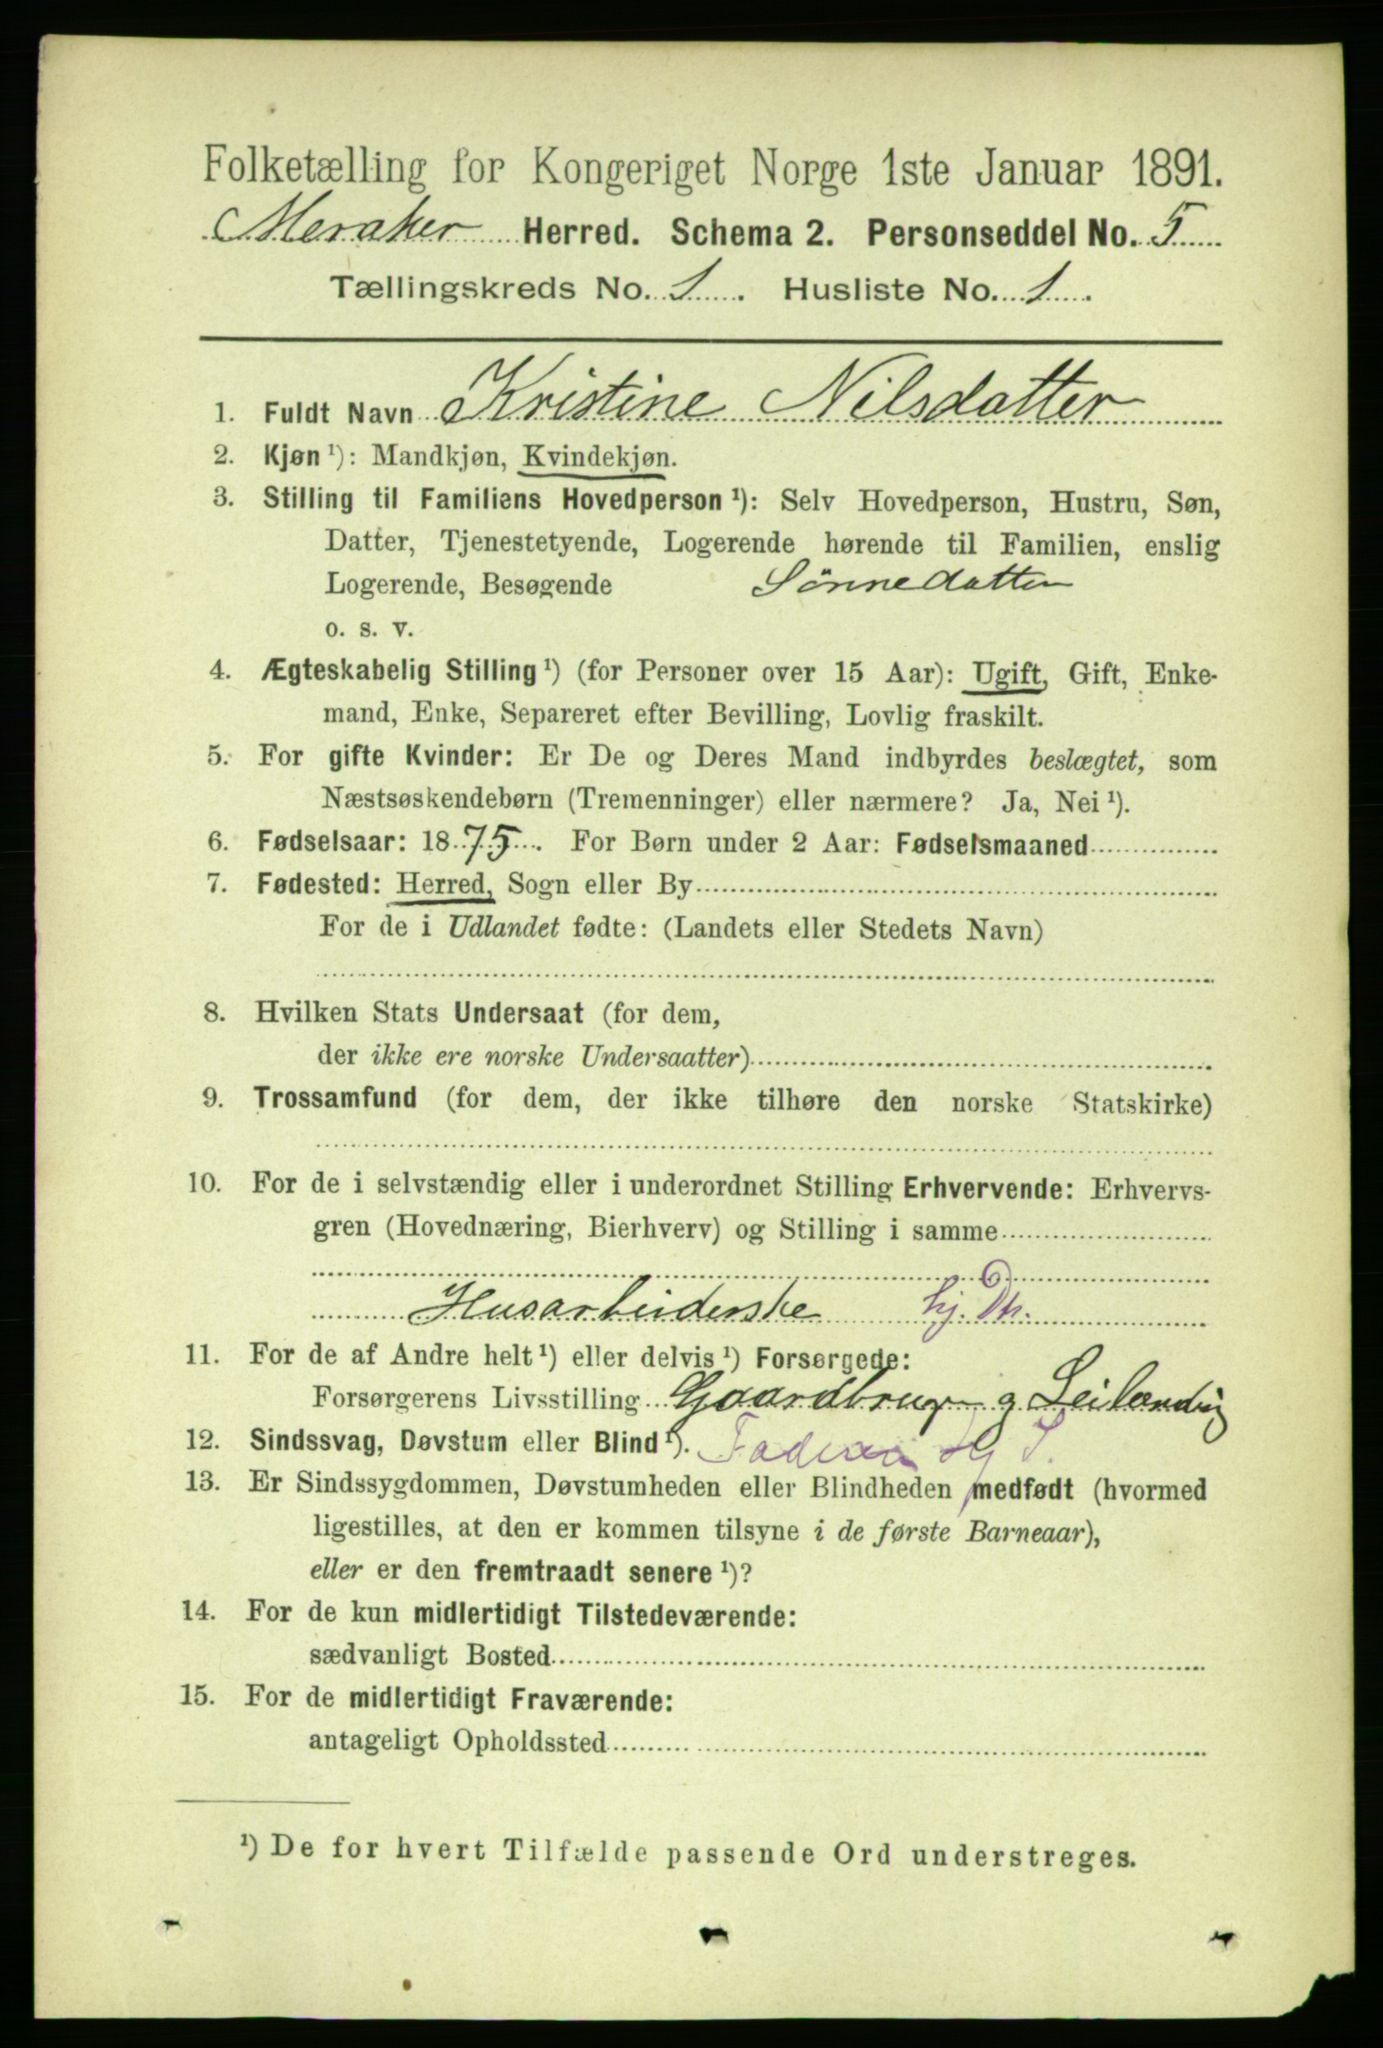 Folketælling for Kongeriget Norge 1ste Januar 1891.
Meraker Herred. Schema 2. Personseddel No. 5
Tællingskreds No. 1. Husliste No. 1.
1. Fuldt Navn Kristine Nilsdatter
2. Kjøn ¹): Mandkjøn, Kvindekjøn.
3. Stilling til Familiens Hovedperson ¹): Selv Hovedperson, Hustru, Søn,
Datter, Tjenestetyende, Logerende hørende til Familien, enslig
Logerende, Besøgende Sönnedatter
o. s. v.
4. Ægteskabelig Stilling ¹) (for Personer over 15 Aar): Ugift, Gift, Enke-
mand, Enke, Separeret efter Bevilling, Lovlig fraskilt.
5. For gifte Kvinder: Er De og Deres Mand indbyrdes beslægtet, som
Næstsøskendebørn (Tremenninger) eller nærmere? Ja, Nei ¹).
6. Fødselsaar: 1875. For Børn under 2 Aar: Fødselsmaaned
7. Fødested: Herred, Sogn eller By
For de i Udlandet fødte: (Landets eller Stedets Navn)
8. Hvilken Stats Undersaat (for dem,
der ikke ere norske Undersaatter)
9. Trossamfund (for dem, der ikke tilhøre den norske Statskirke)
10. For de i selvstændig eller i underordnet Stilling Erhvervende: Erhvervs-
gren (Hovednæring, Bierhverv) og Stilling i samme
Husarbeiderske hj. Dtr.
11. For de af Andre helt ¹) eller delvis ¹) Forsørgede:
Forsørgerens Livsstilling Gaardbruger g Leilændig
12. Sindssvag, Døvstum eller Blind ¹).
13. Er Sindssygdommen, Døvstumheden eller Blindheden medfødt (hvormed
ligestilles, at den er kommen tilsyne i de første Barneaar),
eller er den fremtraadt senere ¹)?
14. For de kun midlertidigt Tilstedeværende:
sædvanligt Bosted
15. For de midlertidigt Fraværende:
antageligt Opholdssted
¹) De for hvert Tilfælde passende Ord understreges.